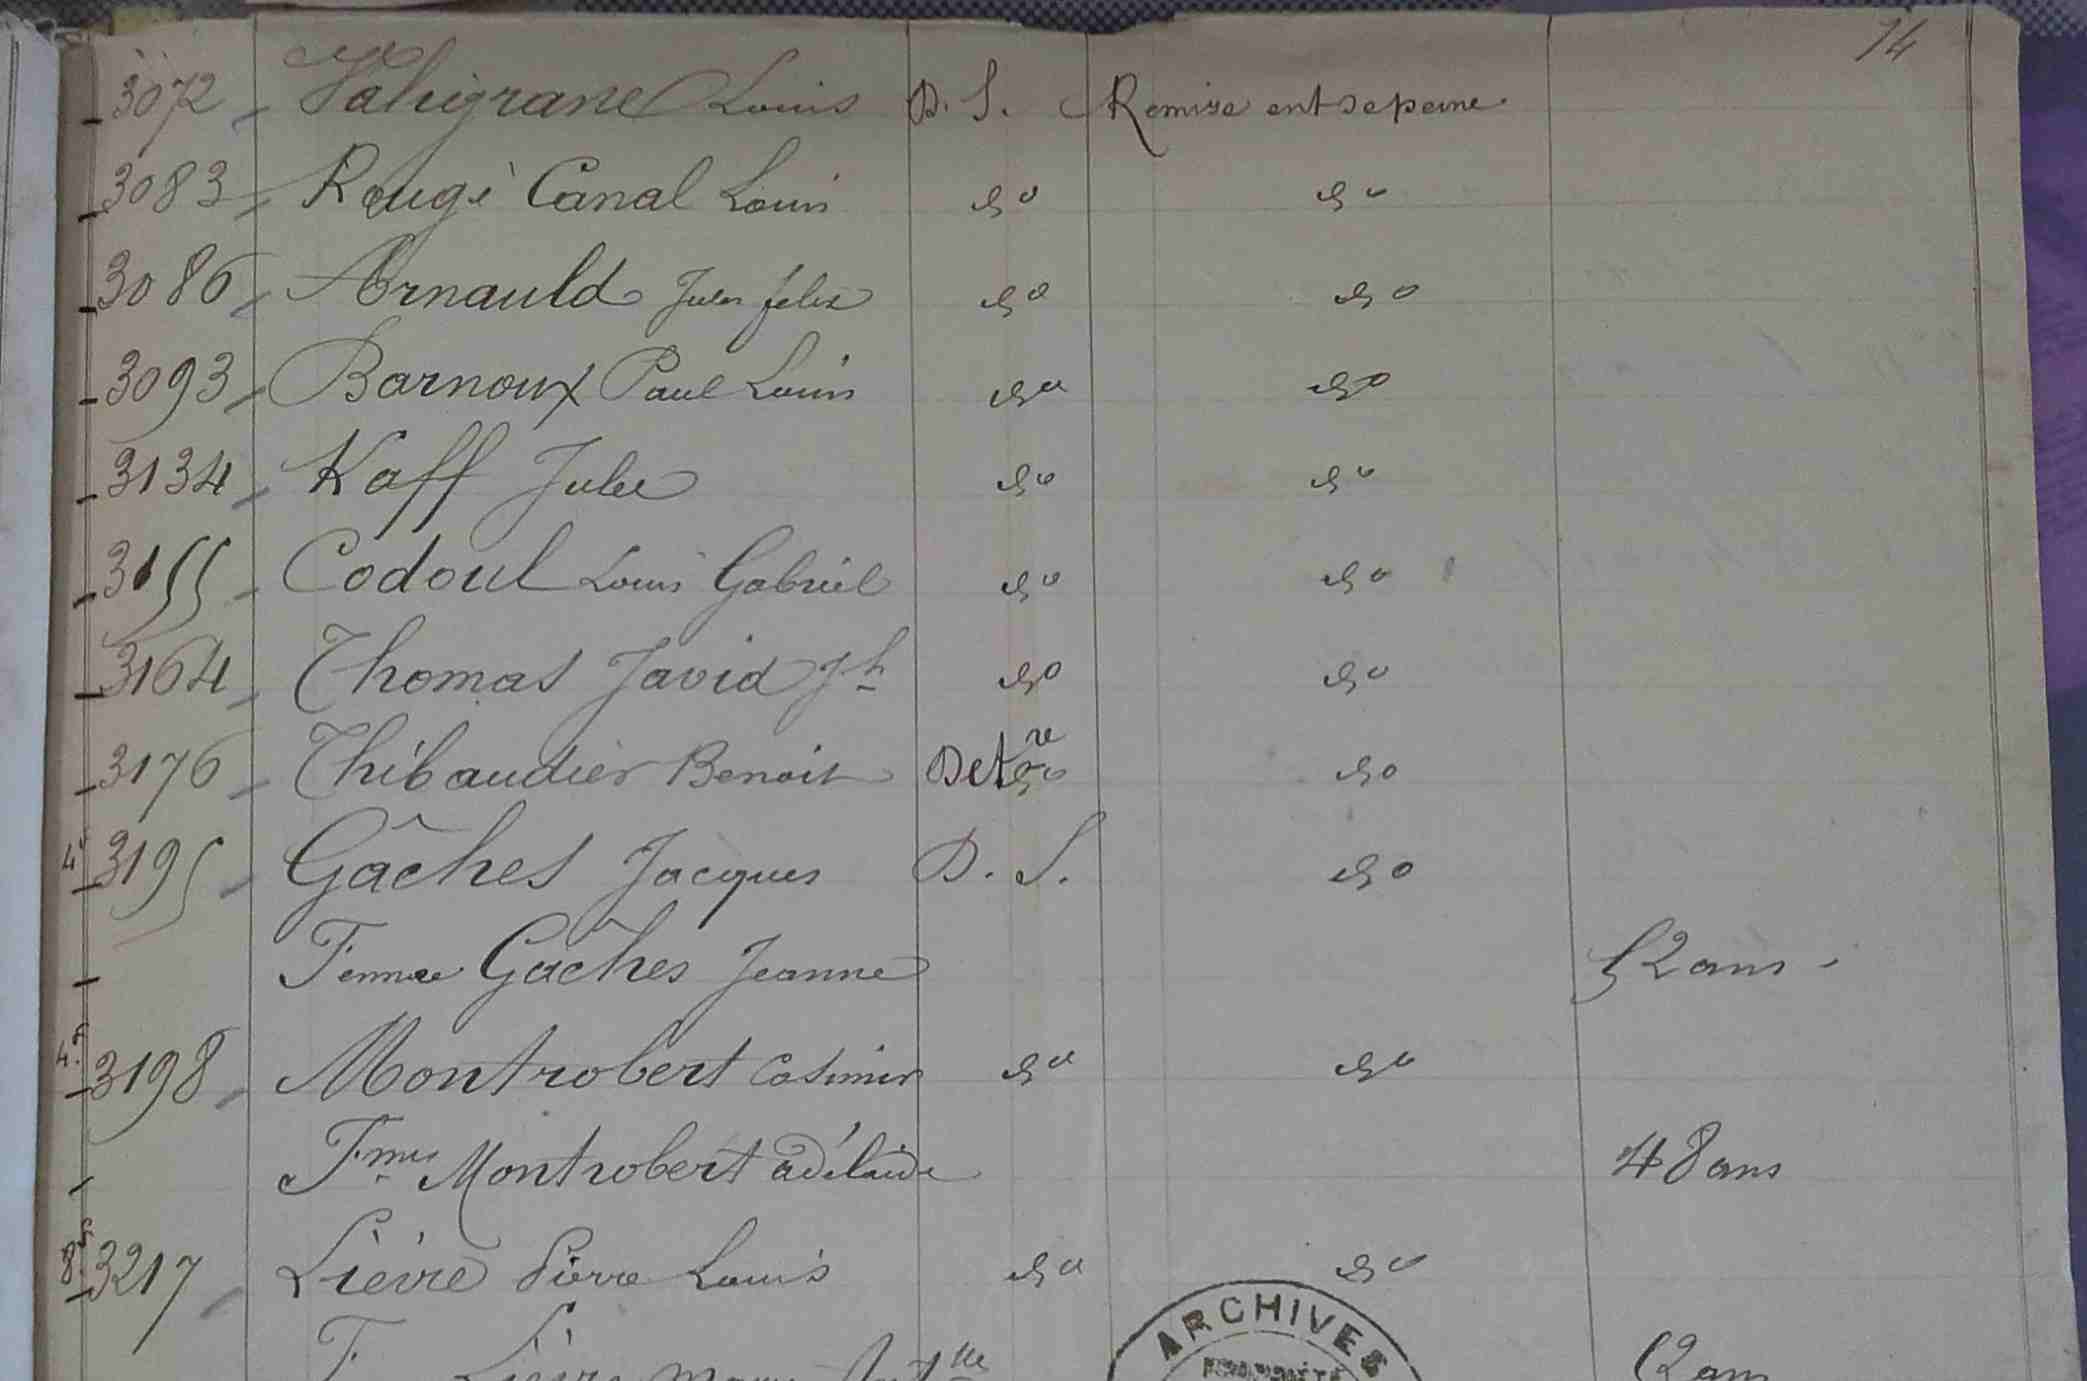 74
3072 Valigrane Louis D. S. Remise ent de peine
3083 Rougé Canal Louis do do
3086 Arnauld Jules félix do do
3093 Barnoux Paul Louis do do
3134 Kaff Jules do do
3155 Codoul Louis Gabriel do do
3164 Thomas Javid Jh do do
3176 Thibaudier Benoit Detre do
3195 Gâches Jacques D. S. do
Femme Gâches Jeanne 52 ans
3198 Montrobert Casimir do do
Fme Montrobert adélaïde 48 ans
3217 Lièvre Pierre Louis do do
ARCHIVES